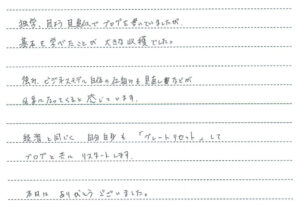 独学、見よう見真似でブログを書いていましたが
基本を学べたことが大きな収穫でした。
ビジネスモデル自体の仕組みも見直し
なってくると感じています。
同じく 自分自身も「グレートリセット」して
ブログと共に リスタートします。
本日は ありがとうございました。